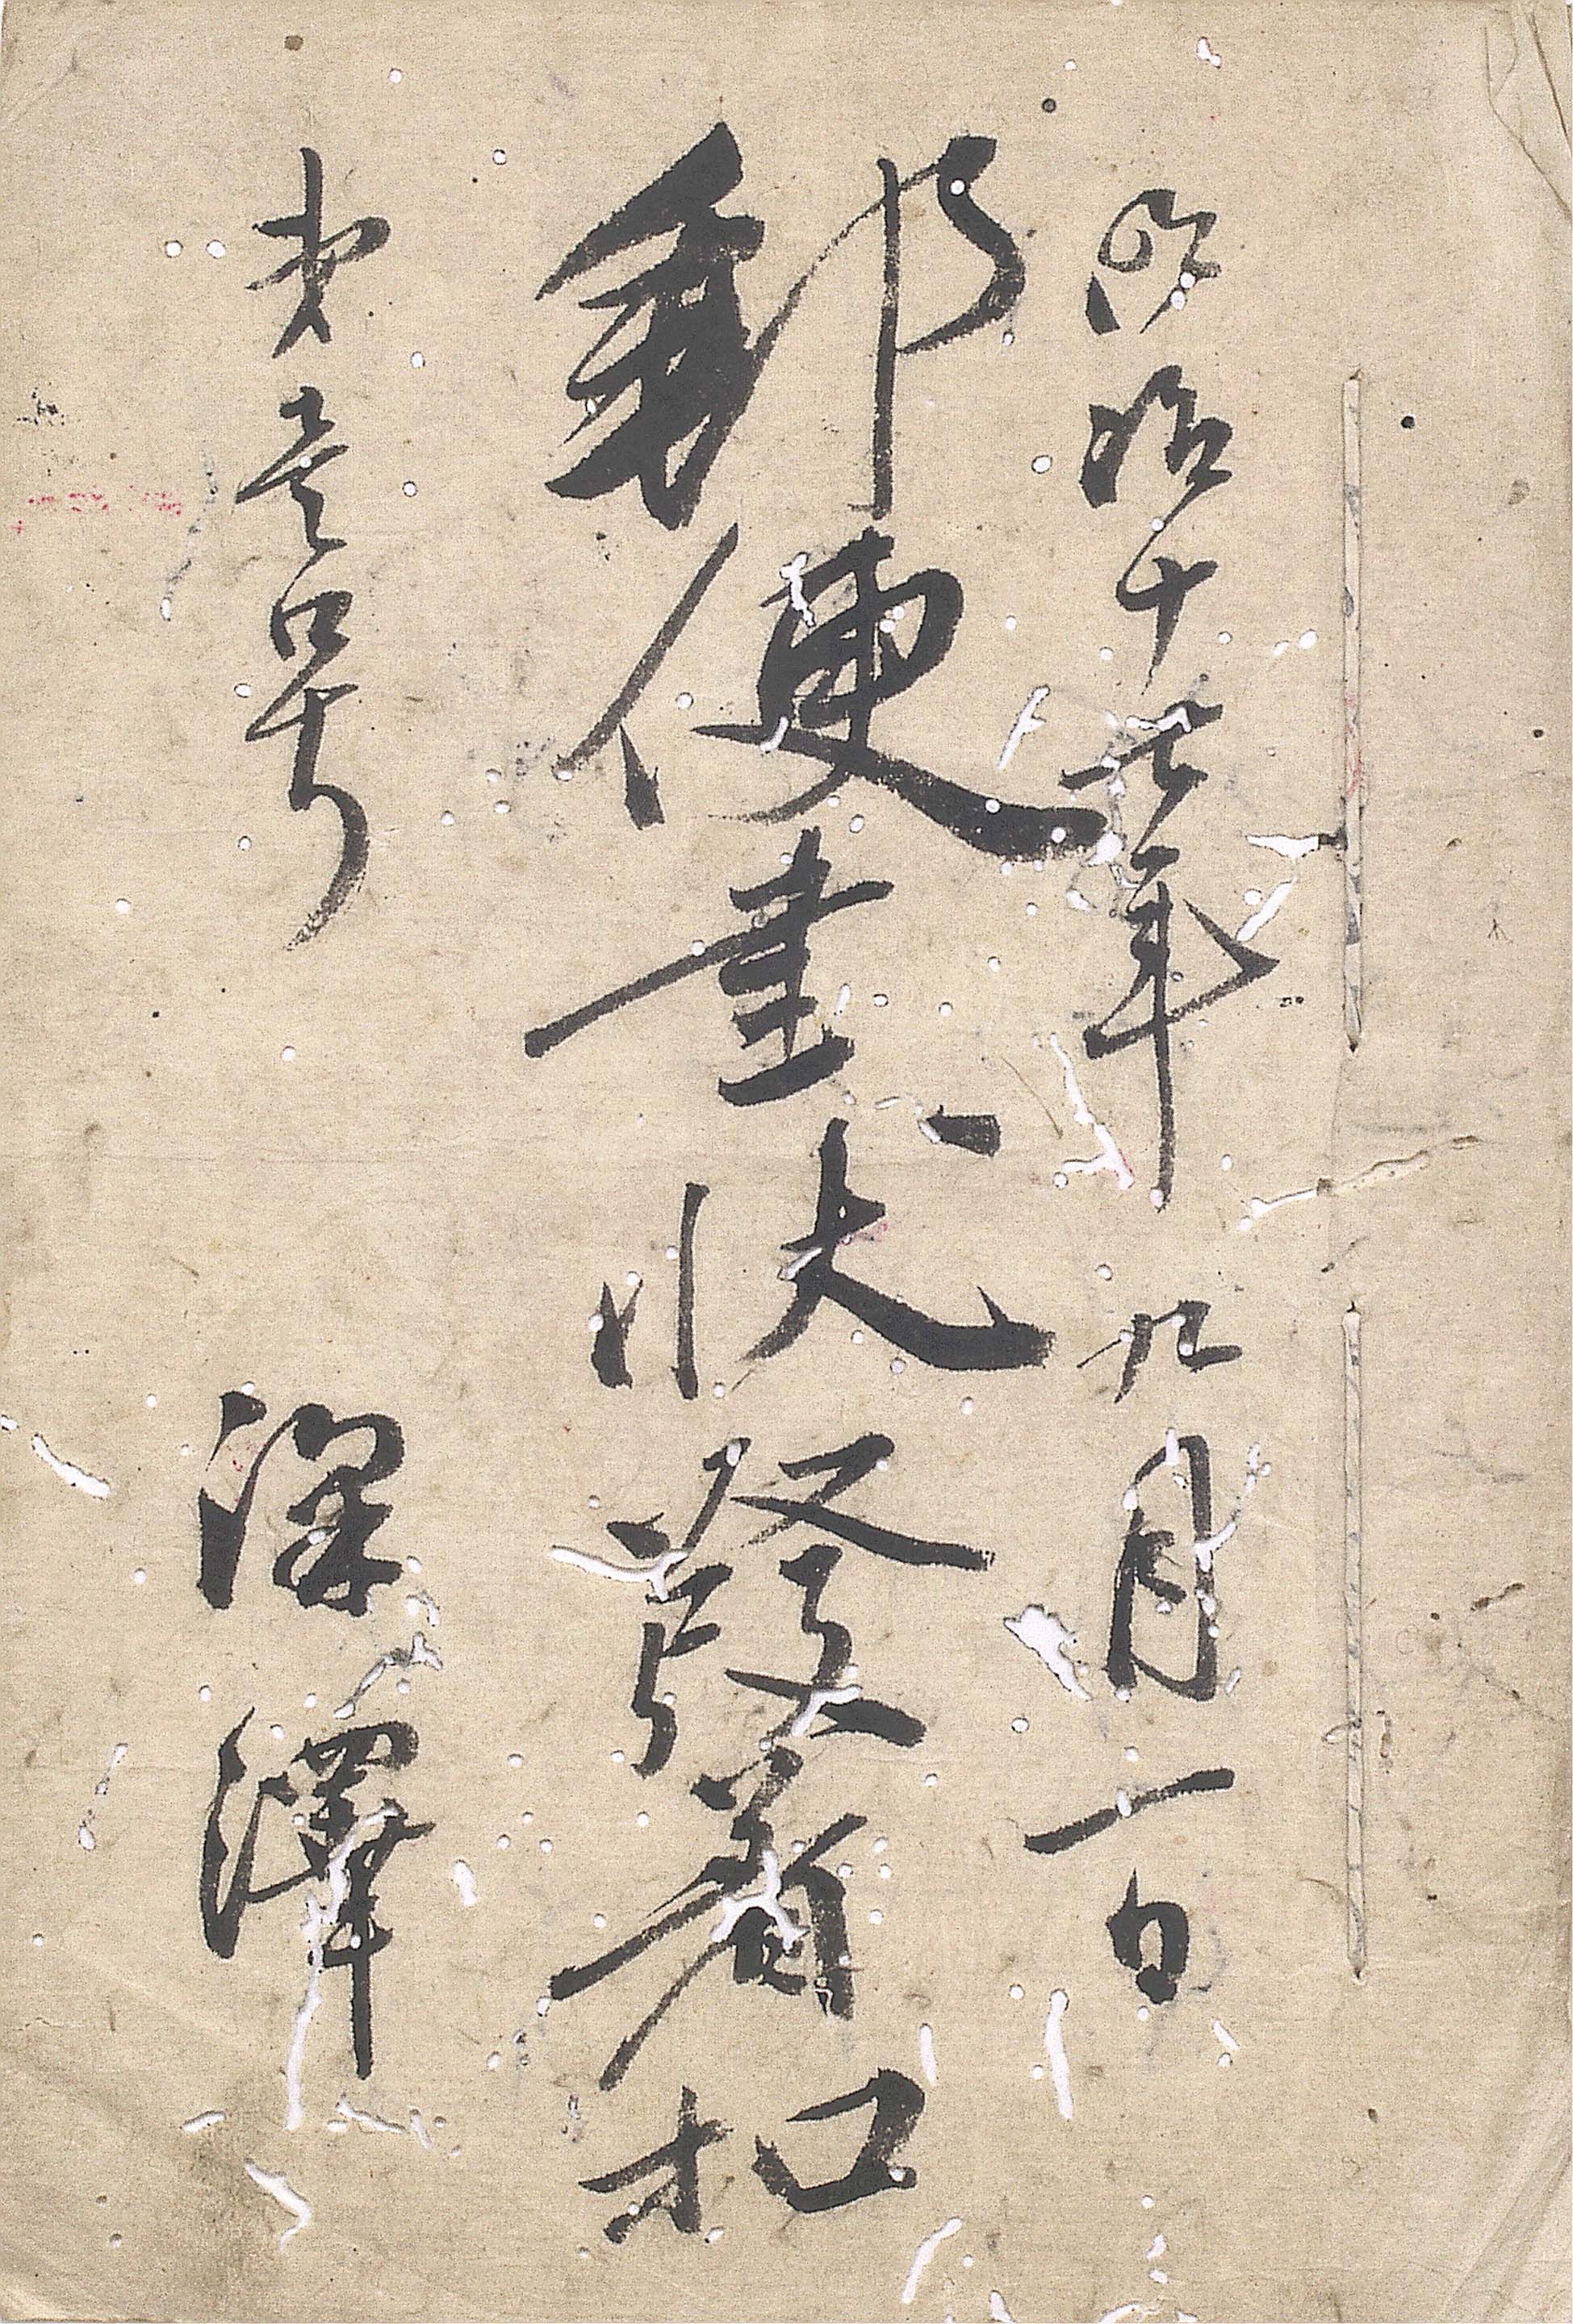 明治十七年九月一日
郵便書状發着扣
第壱号 深澤